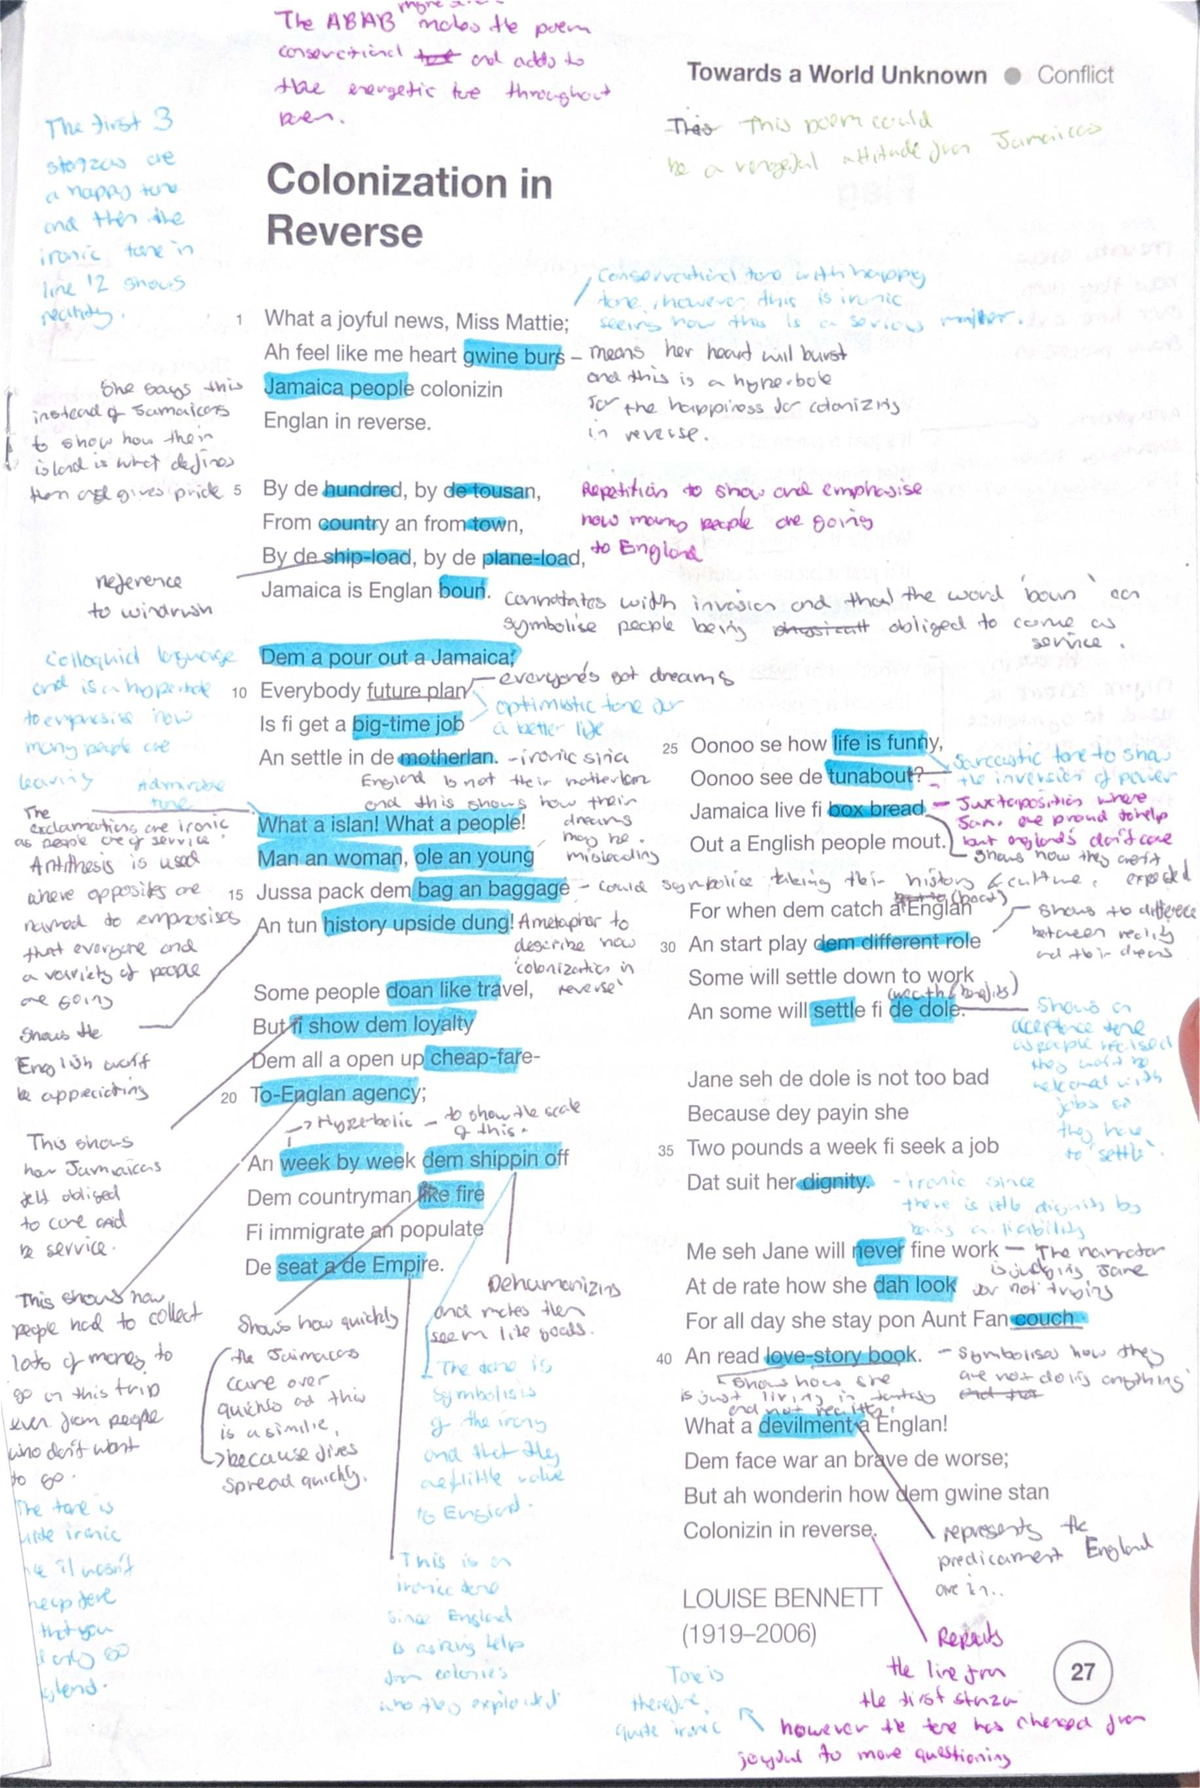 The ABAB more makes the poem
and adds to
the energetic tone throughout
poem.
Towards a World Unknown ● Conflict
This poem could
be a vengeful attitude from Jamaicans
The first 3
stanzas are
a happy tone
and then the
ironic tone in
line 12 shows
reality.
Colonization in
Reverse
tone with happy
tone, however this is ironic
seeing how this is a serious matter.
1 What a joyful news, Miss Mattie;
Ah feel like me heart gwine burs
Jamaica people colonizin
Englan in reverse.
– means her heart will burst
and this is a hyperbole
for the happiness for colonizing
in reverse.
She says this
instead of Jamaicans
to show how their
island is what defines
them and gives pride
5 By de hundred, by de tousan,
From country an from town,
By de ship-load, by de plane-load,
Jamaica is Englan boun.
Repetition to show and emphasise
how many people are going
to England
reference
to windrush
connotates with invasion and that the word 'boun' can
symbolise people being obliged to come as
service.
Colloquial language
and is a hyperbole
to emphasise how
many people are
leaving
Dem a pour out a Jamaica;
10 Everybody future plan
Is fi get a big-time job
An settle in de motherlan.
everyone's got dreams
optimistic tone for
a better life
- ironic since
England is not their motherlan
and this shows how their
dreams
may be
misleading
Admirable
tone
The
exclamations are ironic
as people are of service.
Antithesis is used
where opposites are
named to emphasises
that everyone and
a variety of people
are going
What a islan! What a people!
Man an woman, ole an young
15 Jussa pack dem bag an baggage
An tun history upside dung!
- could symbolise taking their history & culture.
A metaphor to
describe how
'colonization in
reverse'
Shows the
English won't
be appreciating
Some people doan like travel,
But fi show dem loyalty
Dem all a open up cheap-fare-
20 To-Englan agency;
→ Hyperbolic – to show the scale
of this.
An week by week dem shippin off
Dem countryman like fire
Fi immigrate an populate
De seat a de Empire.
This shows
how Jamaicans
felt obliged
to come and
be service.
This shows how
people had to collect
lots of money to
go on this trip
even from people
who don't want
to go.
Shows how quickly
the Jamaicans
came over
quickly as this
is a similie,
→ because fires
spread quickly.
Dehumanizing
and makes them
seem like goods.
The tone is
symbolisis
of the irony
and that they
are little value
to England.
This is an
ironic tone
since England
is asking help
from colonies
who they exploited
25 Oonoo se how life is funny,
Oonoo see de tunabout?
Jamaica live fi box bread
Out a English people mout.
Sarcastic tone to show
the inversion of power
- Juxtaposition where
Jam. are proud to help
but england's don't care
Shows how they aren't
expected
For when dem catch a Englan
30 An start play dem different role
Some will settle down to work
An some will settle fi de dole.
(boat)
Shows the difference
between reality
and their dreams
Shows an
acceptance tone
Jane seh de dole is not too bad
Because dey payin she
35 Two pounds a week fi seek a job
Dat suit her dignity.
jobs so
they have
to 'settle'.
- ironic since
there is little dignity by
being a liability
Me seh Jane will never fine work
At de rate how she dah look
For all day she stay pon Aunt Fan couch
40 An read love-story book.
– The narrator
is judging Jane
for not trying
– Symbolises how they
are not doing anything
Shows how she
is just living in fantasy
and not reality!
What a devilment a Englan!
Dem face war an brave de worse;
But ah wonderin how dem gwine stan
Colonizin in reverse.
represents the
predicament England
are in..
LOUISE BENNETT
(1919–2006)
Repeats
the line from
the first stanza
however the tone has changed from
joyful to more questioning
Tone is
therefore,
quite ironic
27